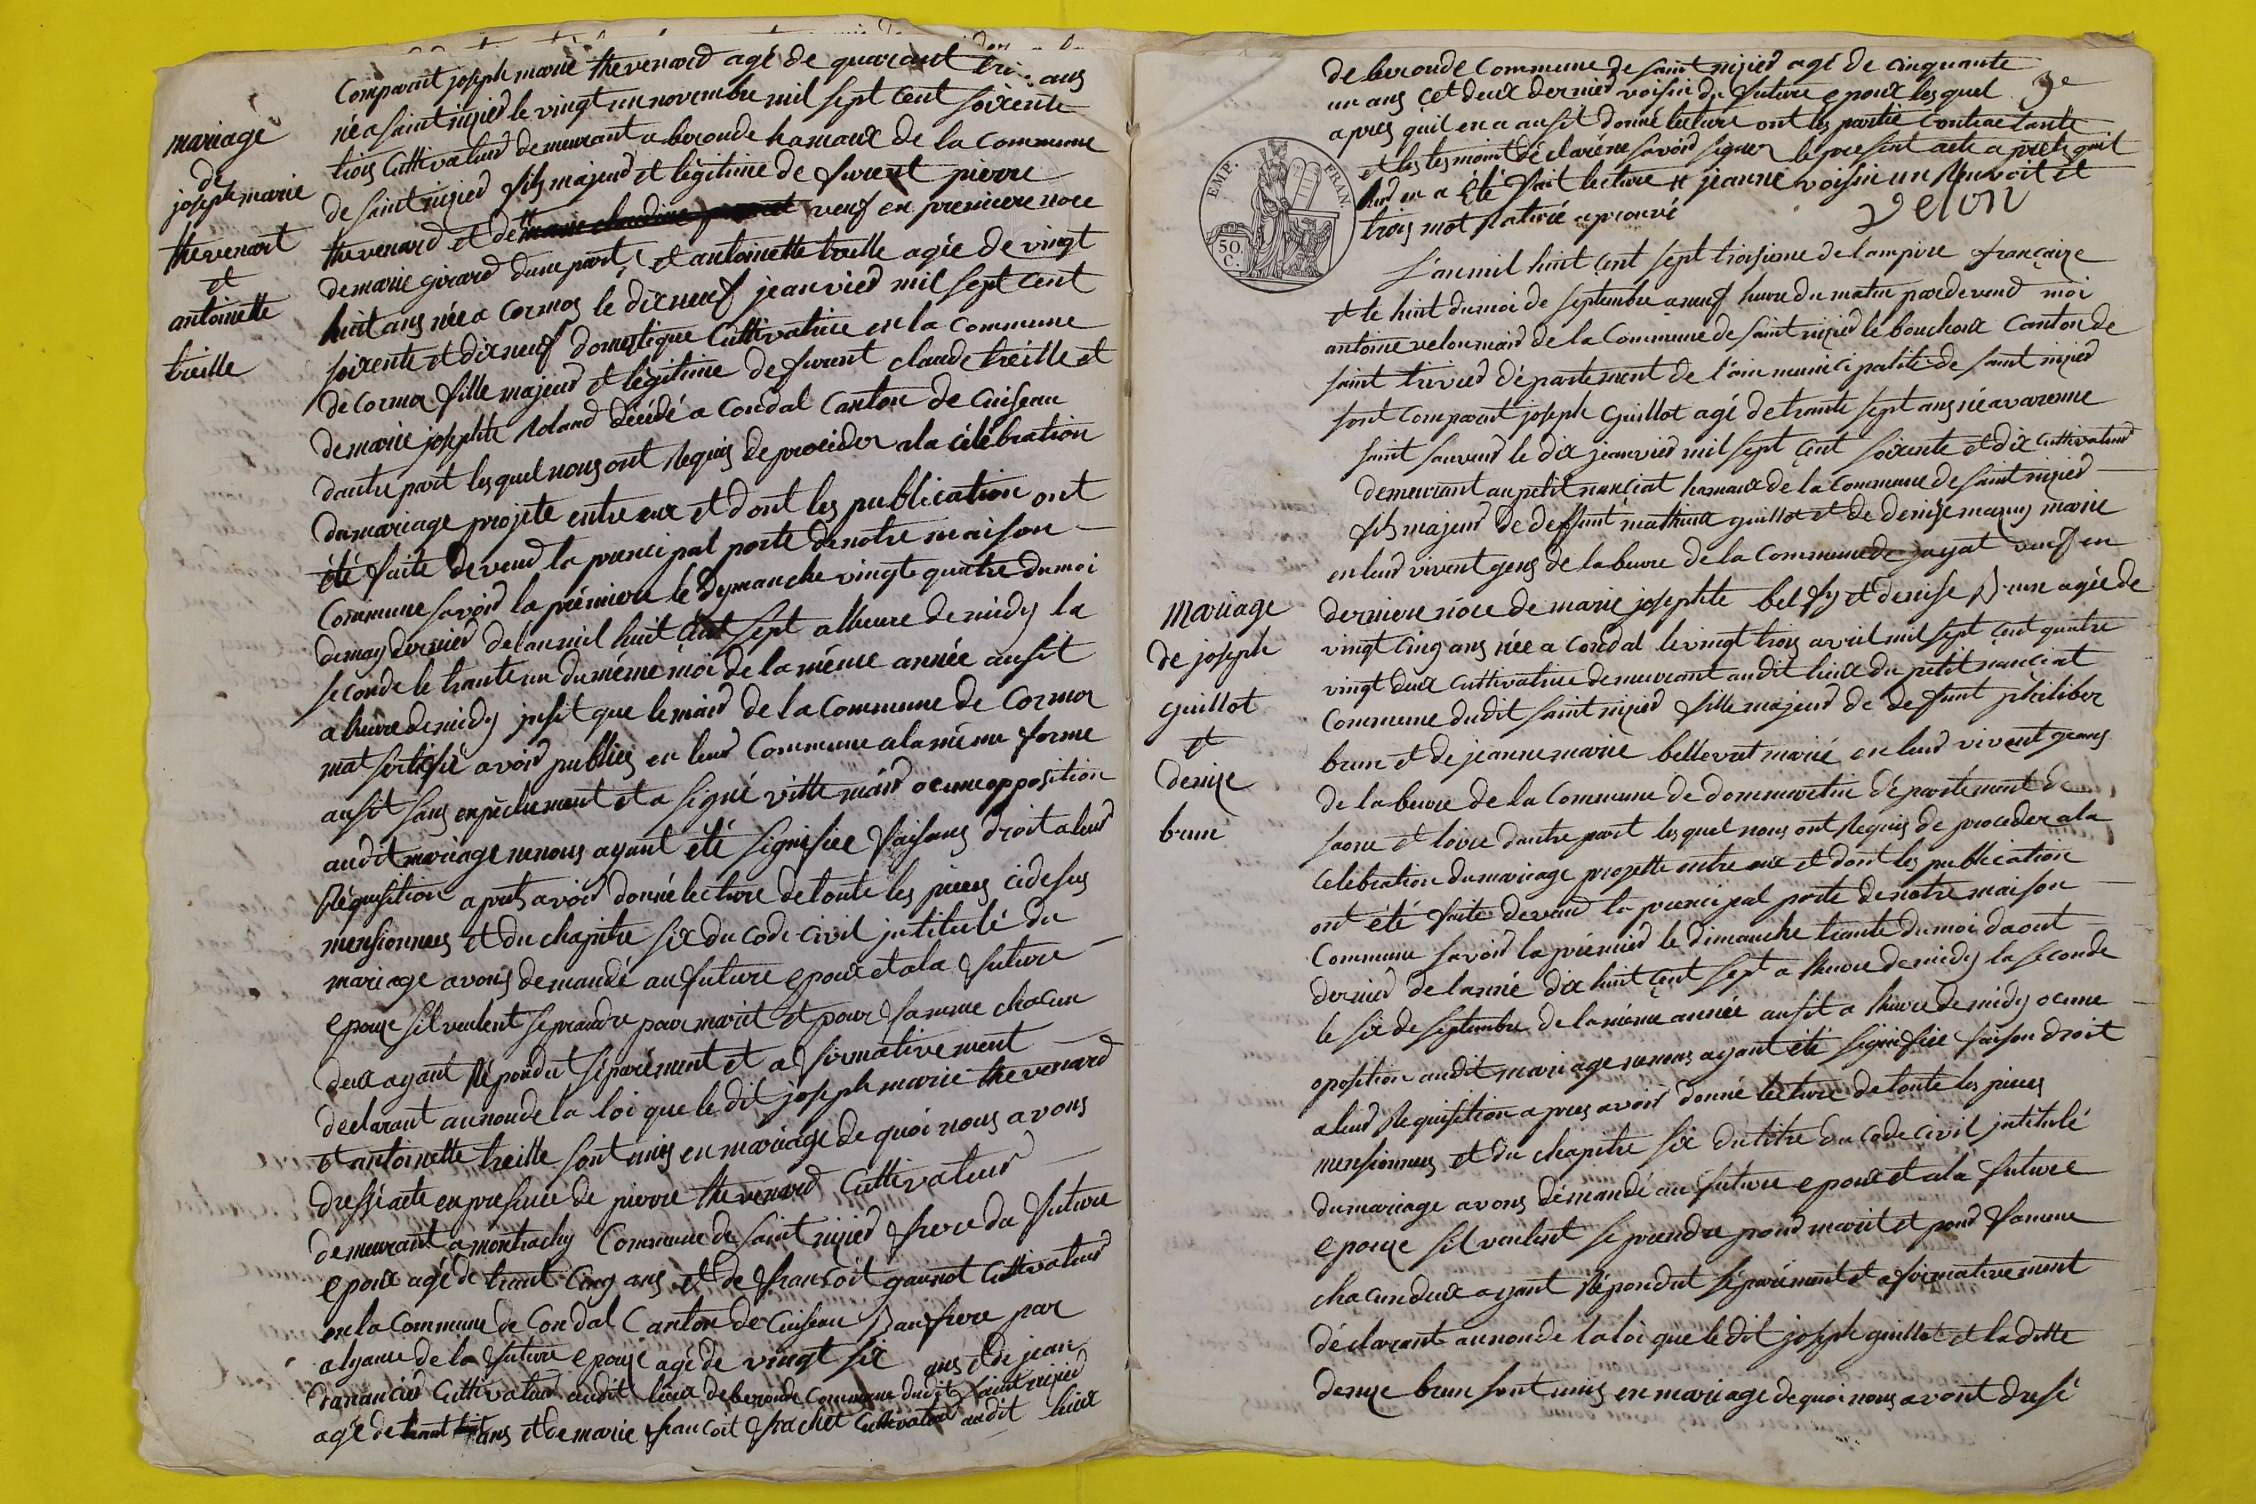 mariage
de
joseph marie
thevenart
et
antoinette
treille
Comparant joseph marie thevenard agé de quarant troi ans
né a saint nizied le vingt un novembre mil sept cent soixente
trois Cultivateur demeurant a beronde hamaux de la Commune
de saint nizied fils majeud et légitime de furent pierre
thevenard et de veuf en premiere noce
de marie girard dune part et antoinette treille agée de vingt
huit ans née a Cormos le dix neuf jeanvied mil sept cent
soixente et dix neuf domestique Cultivatrice en la Commune
de Cormos fille majeud et légitime de furent claude treille et
de marie josephte Roland décédé a Condal Canton de Cuiseau
dautre part lesquel nous ont Requis de procéder ala célébration
du mariage projete entre eux et dont les publication ont
été faite devend la principal porte de notre maison
Commune savoid la prémiere le dymanche vingt quatre du moi
de may dernied de lan mil huit Cent sept a lheure de midy la
seconde le trante un du méme moi de la méme année ausit
a heure de midy jnsit que le maid de la Commune de Cormos
mat sertifié avoid publiés en leud Commune ala méme forme
ausit sans enpêchement et a signé vitte maid ocune opposition
audit mariage ne nous ayant été signifiee faisans droit a leud
Réquisition aprets avoid donné lecture de toute les pieces cidesus
mensionnees et du chapitre six du code civil jntitulé du
mariage avons demandé au future epoux et ala future
epouze sil veulent se prandre pour marit et pour famme chacun
deux ayant Répondut séparément et afirmativement
declarant au non de la loi que le dit joseph marie thevenard
et antoinette treille sont unis en mariage de quoi nous avons
dressé acte en presence de pierre thevenard Cultivateud
demeurant a montrachy Commune de saint nizied frere du future
epoux agé de trant Cinq ans et de francoit gaunot Cultivateud
en la Commune de Condal Canton de Cuiseau Baufrere par
alyance de la future epouze agé de vingt six ans et de jean
Dananchied Cultivateud audit lieux de beronde Commune dudit saint nizied
agé de trant huit ans et de marie francoit frachet Cultivateud audit lieux
de beronde Commune de saint nizied agé de cinquante
un ans cet deux dernied voisin du future epoux lesquel
apres quil en a ausit donné lecture ont les partie Contractante
et les tesmoint déclaré ne savoid signer le present acte aprets quil
leud en a été fait lecture # jeanne voisin un Renvoit et
trois mot Raturé aprouvé
Velon
3e
EMP. FRAN.
50 C.
Mariage
de joseph
guillot
et
denize
brun
L'an mil huit cent sept troisieme de lampire françaize
et le huit du moi de septembre a neuf heure du matin pardevend moi
antoine velon maid de la Commune de saint nizied le bouchoux Canton de
saint trivied département de l'ain municipalité de saint nizied
sont comparant joseph Guillot agé de trante sept ans né a varenne
saint sauveud le dix jeanvied mil sept cent soixente et dix cultivateud
demeurant au petit nanciat hamaux de la Commune de saint nizied
fils majeud de deffunt mathieux guillot et de denize marie
en leud vivent gens de labeure de la Commune de jayat veuf en
derniere noce de marie josephte belfy et denise Brun agée de
vingt cinq ans née a Condal le vingt trois avril mil sept cent quatre
vingt deux cultivatrice demeurant audit lieux du petit nanciat
Commune dudit saint nizied fille majeud de deffunt philiber
brun et de jeanne marie bellevrat marié en leud vivent geans
de labeure de la Commune de dommartin département de
saone et loire dautre part lesquel nous ont Requis de proceder ala
célébration du mariage projette entre eux et dont les publication
ont été faite devend la principal porte de notre maison
Commune savoid la prémied le dimanche trante du moi daout
dernied de lanné dix huit cent sept a heure de midy la seconde
le six de septembre de la méme année ausit a heure de midy ocune
oposition audit mariage ne nous ayant été signifiee faison droit
a leud Requisition apres avoid donné lecture de toute les pieces
mensionnees et du chapitre six du titre du code civil jntitulé
du mariage avons démandé au future epoux et ala future
epouze sil veulent se prandre poud marit et poud famme
chacun deux ayant Répondut séparément et afirmativement
déclarant au non de la loi que le dit joseph guillot et la ditte
denize brun sont unis en mariage de quoi nous avont dresé